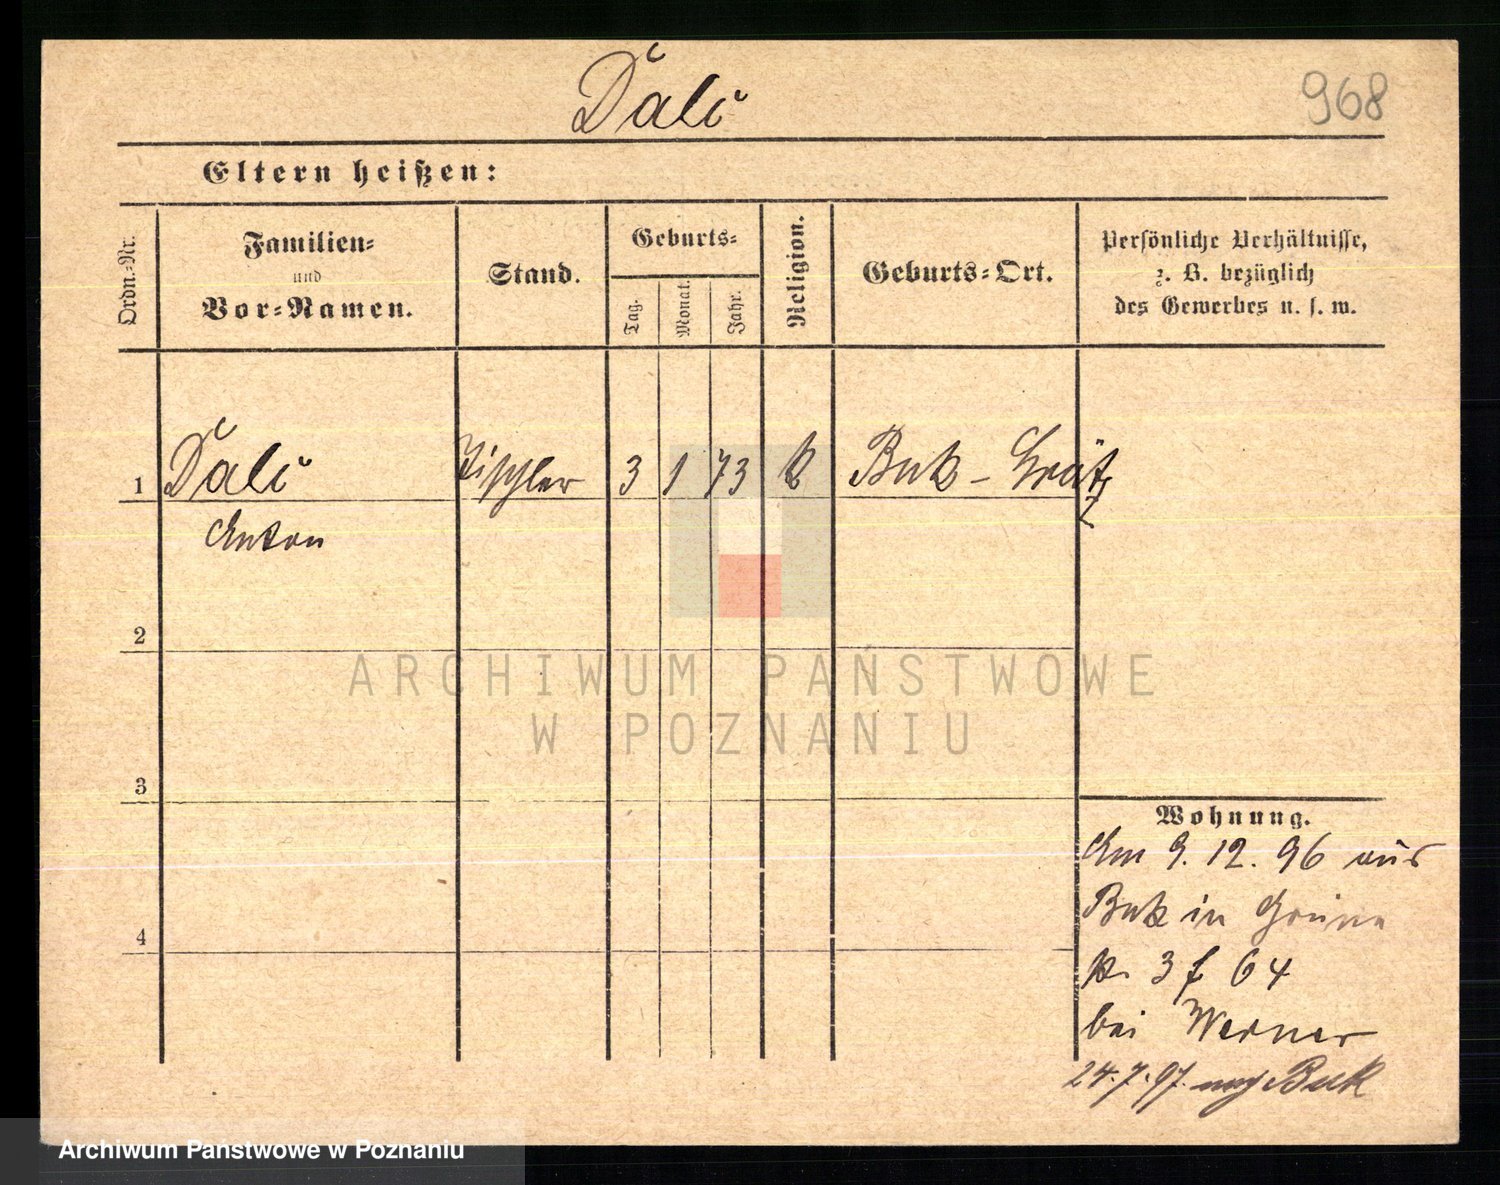 Dalü
968
Eltern heißen:
Ordn.-Nr.
Familien-
und
Vor-Namen.
Stand.
Geburts-
Tag.
Monat.
Jahr.
Religion.
Geburts-Ort.
Persönliche Verhältnisse,
z. B. bezüglich
des Gewerbes u. s. w.
1 Tischler 3 1 73 k Buk - Grätz
Anton
2
3
4
Wohnung.
Am 9. 12. 96 aus
Buk in
3 64
bei Werner
24.7.97. nach Buk
ARCHIWUM PAŃSTWOWE
W POZNANIU
Archiwum Państwowe w Poznaniu